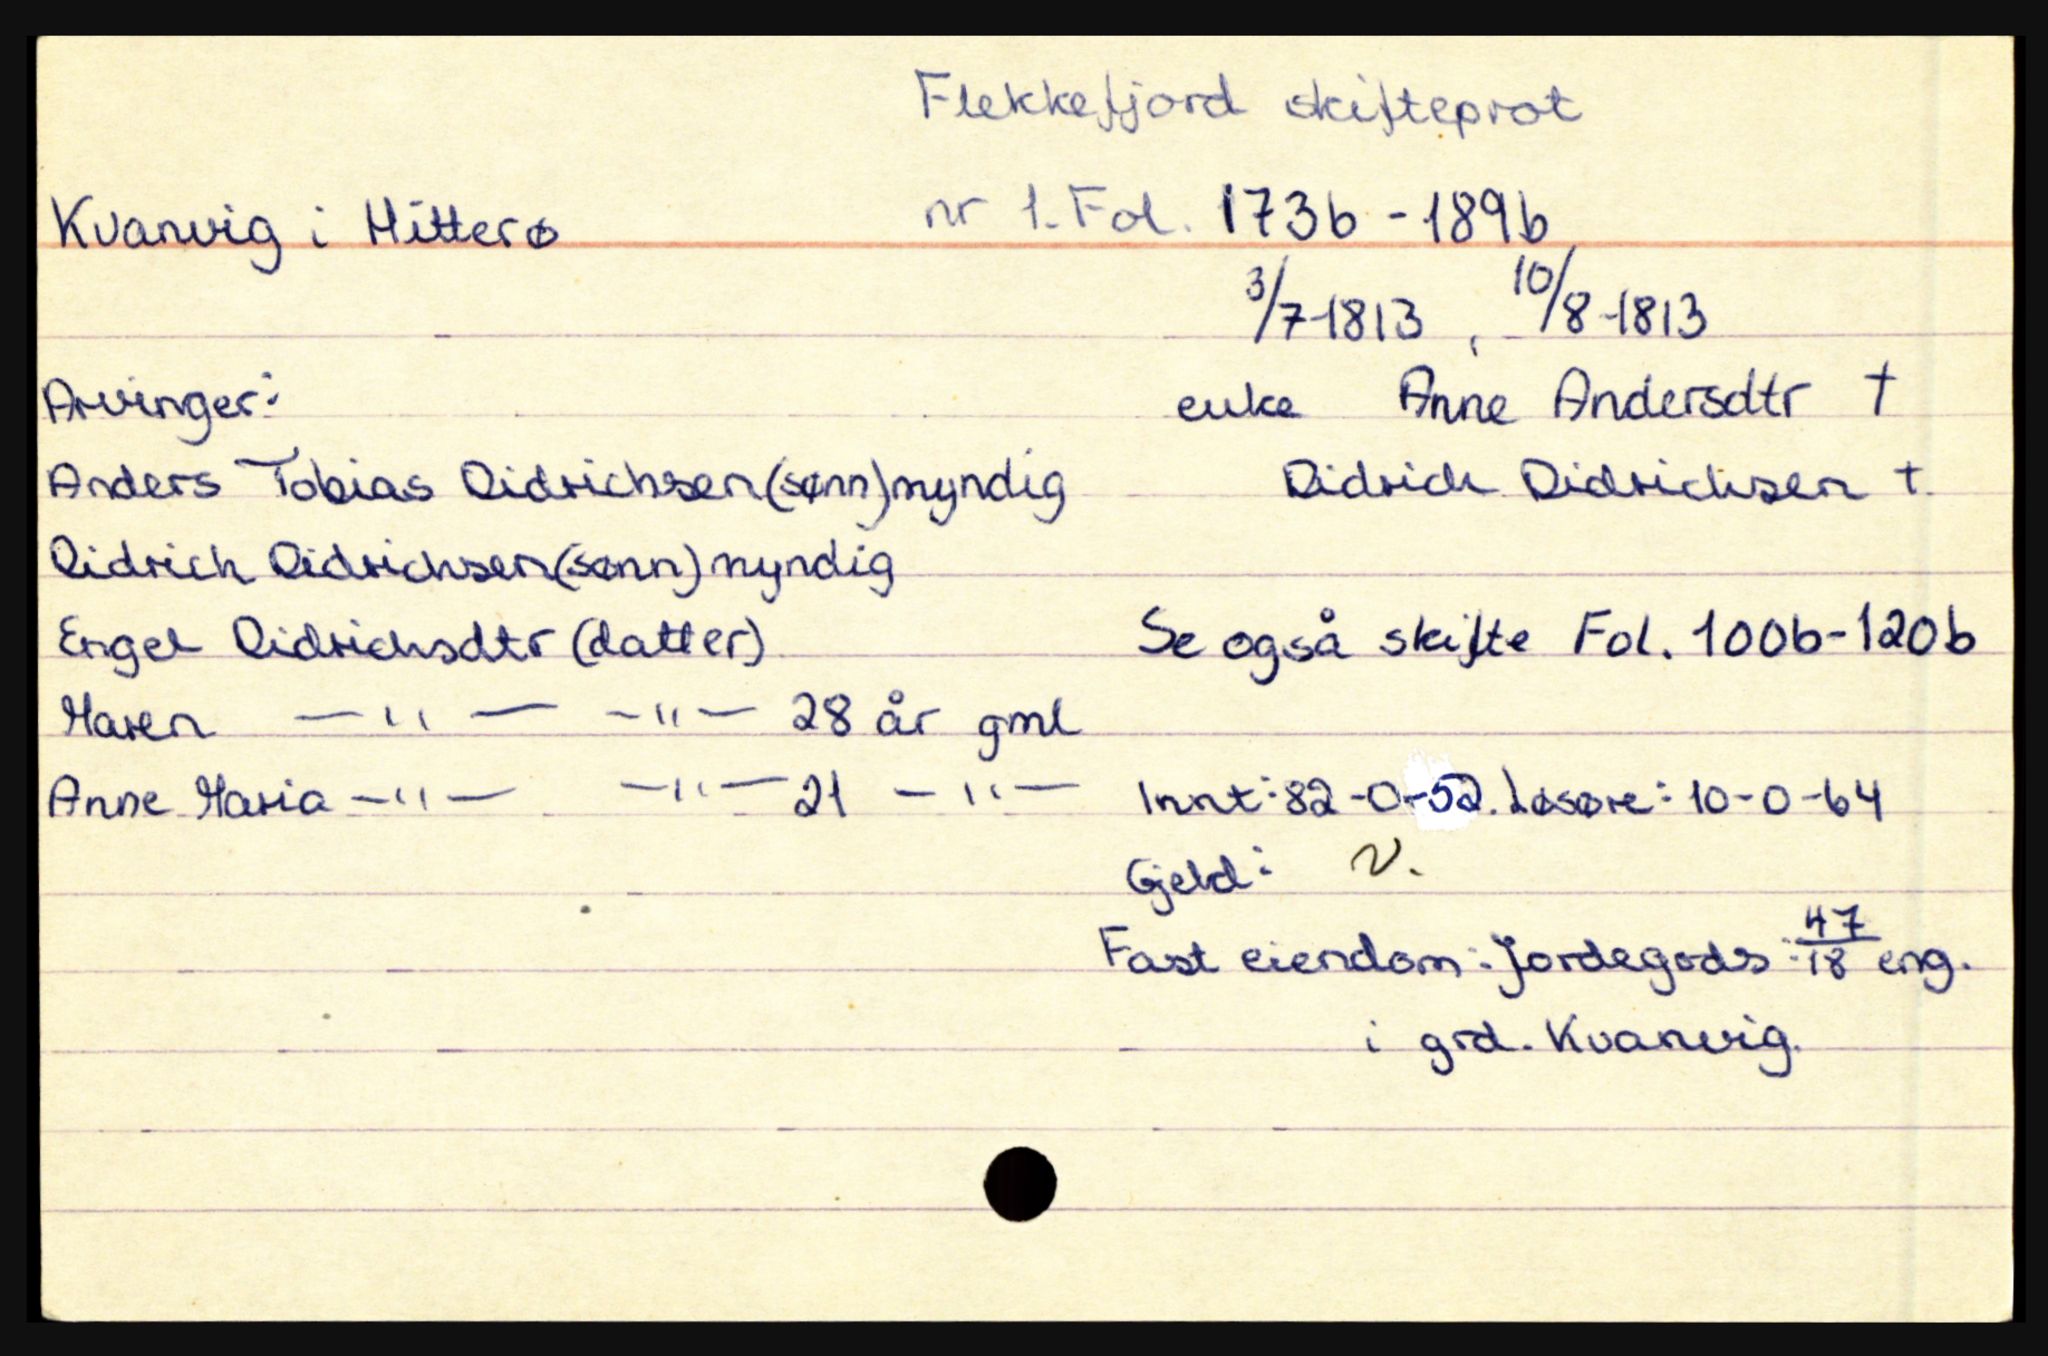 Flekkefjord skifteprot
Kvanvig i Hitterø nr 1. Fol. 173b - 189b
3/7-1813, 10/8-1813
Arvinger: enke Anne Andersdtr †
Anders Tobias Didrichsen (sønn) myndig Didrich Didrichsen †
Didrich Didrichsen (sønn) myndig
Engel Didrichsdtr (datter) Se også skifte Fol. 100b-120b
Maren — " — — " — 28 år gml
Anne Maria — " — — " — 21 — " — Innt: 82-0-52. Løsøre: 10-0-64
Gjeld: V.
Fast eiendom: Jordegods: 47/18 eng.
i grd. Kvanvig.